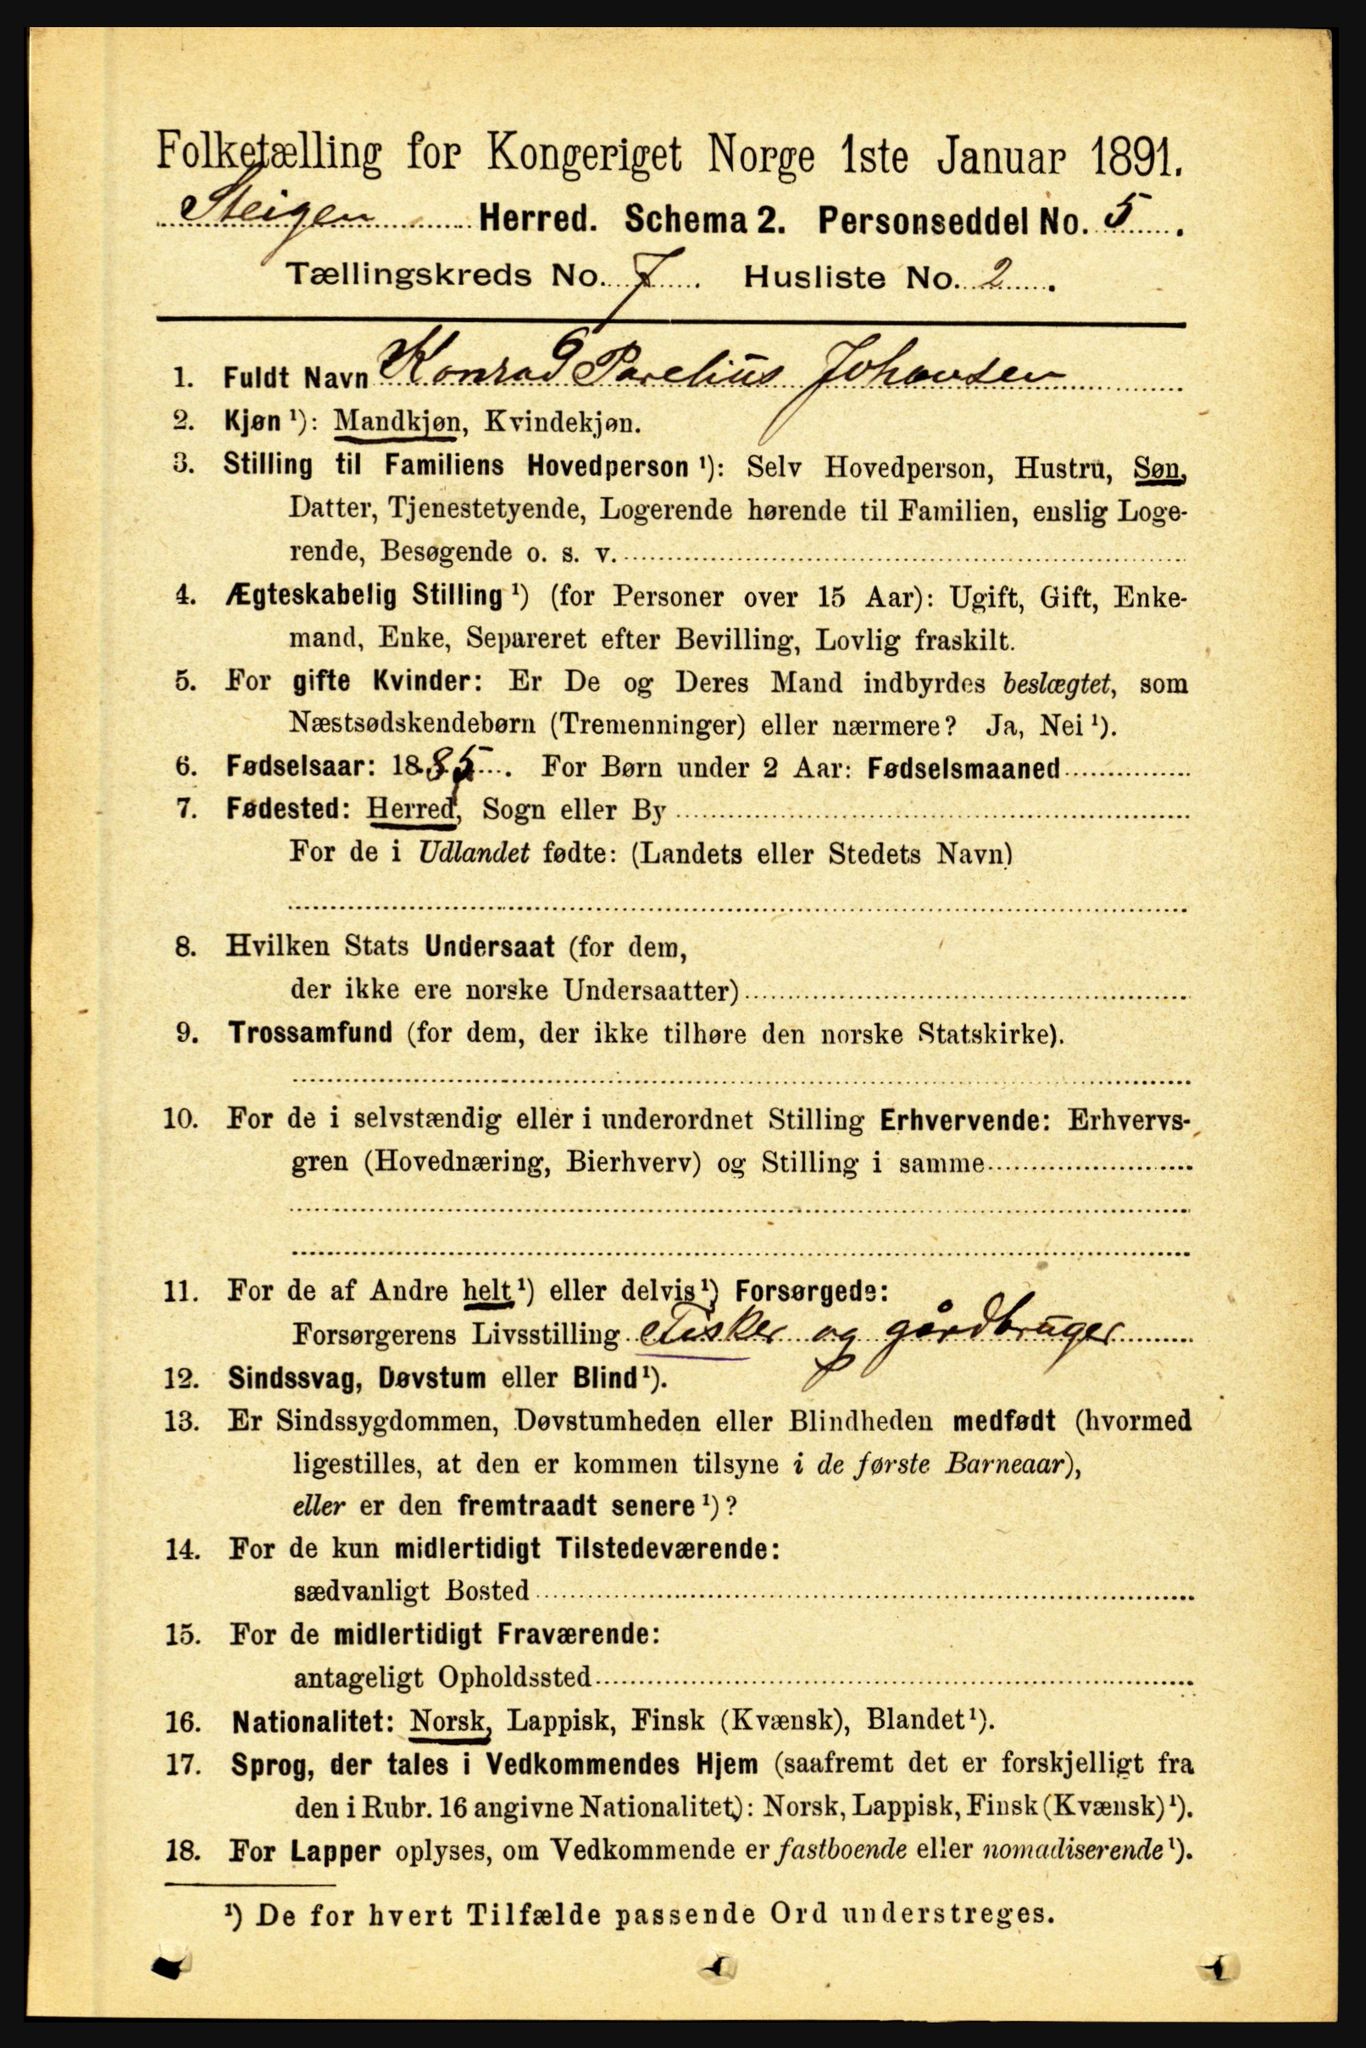 Folketælling for Kongeriget Norge 1ste Januar 1891.
Steigen Herred. Schema 2. Personseddel No. 5.
Tællingskreds No. 7. Husliste No. 2.
1. Fuldt Navn Konrad Parelius Johansen
2. Kjøn ¹): Mandkjøn, Kvindekjøn.
3. Stilling til Familiens Hovedperson ¹): Selv Hovedperson, Hustru, Søn,
Datter, Tjenestetyende, Logerende hørende til Familien, enslig Loge-
rende, Besøgende o. s. v.
4. Ægteskabelig Stilling ¹) (for Personer over 15 Aar): Ugift, Gift, Enke-
mand, Enke, Separeret efter Bevilling, Lovlig fraskilt.
5. For gifte Kvinder: Er De og Deres Mand indbyrdes beslægtet, som
Næstsødskendebørn (Tremenninger) eller nærmere? Ja, Nei ¹).
6. Fødselsaar: 1885. For Børn under 2 Aar: Fødselsmaaned
7. Fødested: Herred, Sogn eller By
For de i Udlandet fødte: (Landets eller Stedets Navn)
8. Hvilken Stats Undersaat (for dem,
der ikke ere norske Undersaatter)
9. Trossamfund (for dem, der ikke tilhøre den norske Statskirke).
10. For de i selvstændig eller i underordnet Stilling Erhvervende: Erhvervs-
gren (Hovednæring, Bierhverv) og Stilling i samme
11. For de af Andre helt ¹) eller delvis ¹) Forsørgede:
Forsørgerens Livsstilling Fisker og gårdbruger
12. Sindssvag, Døvstum eller Blind ¹).
13. Er Sindssygdommen, Døvstumheden eller Blindheden medfødt (hvormed
ligestilles, at den er kommen tilsyne i de første Barneaar),
eller er den fremtraadt senere ¹)?
14. For de kun midlertidigt Tilstedeværende:
sædvanligt Bosted
15. For de midlertidigt Fraværende:
antageligt Opholdssted
16. Nationalitet: Norsk, Lappisk, Finsk (Kvænsk), Blandet ¹).
17. Sprog, der tales i Vedkommendes Hjem (saafremt det er forskjelligt fra
den i Rubr. 16 angivne Nationalitet): Norsk, Lappisk, Finsk (Kvænsk) ¹).
18. For Lapper oplyses, om Vedkommende er fastboende eller nomadiserende ¹).
¹) De for hvert Tilfælde passende Ord understreges.